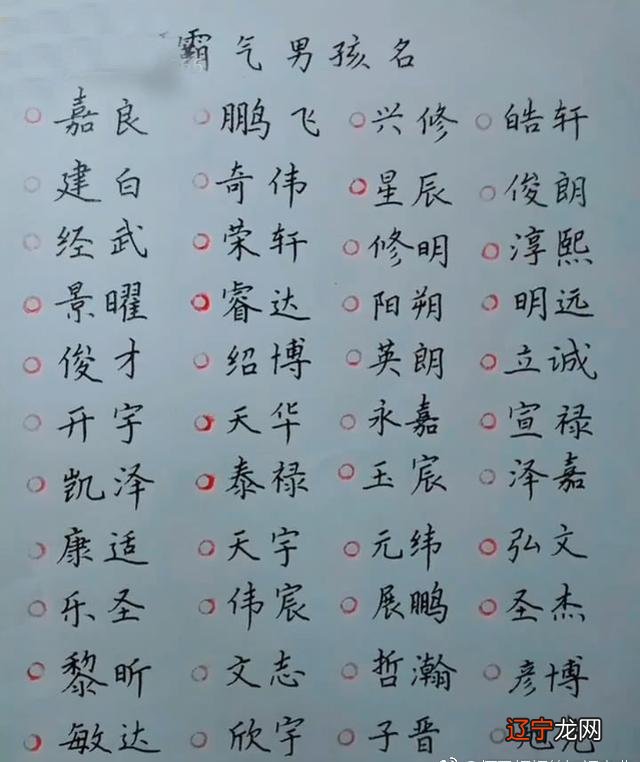 霸气男孩名
嘉良 鹏飞 兴修 皓轩
建白 奇伟 星辰 俊朗
经武 荣轩 修明 淳熙
景曜 睿达 阳朔 明远
俊才 绍博 英朗 立诚
开宇 天华 永嘉 宣禄
凯泽 泰禄 玉宸 泽嘉
康适 天宇 元纬 弘文
乐圣 伟宸 展鹏 圣杰
黎昕 文志 哲瀚 彦博
敏达 欣宇 子晋
辽宁龙网